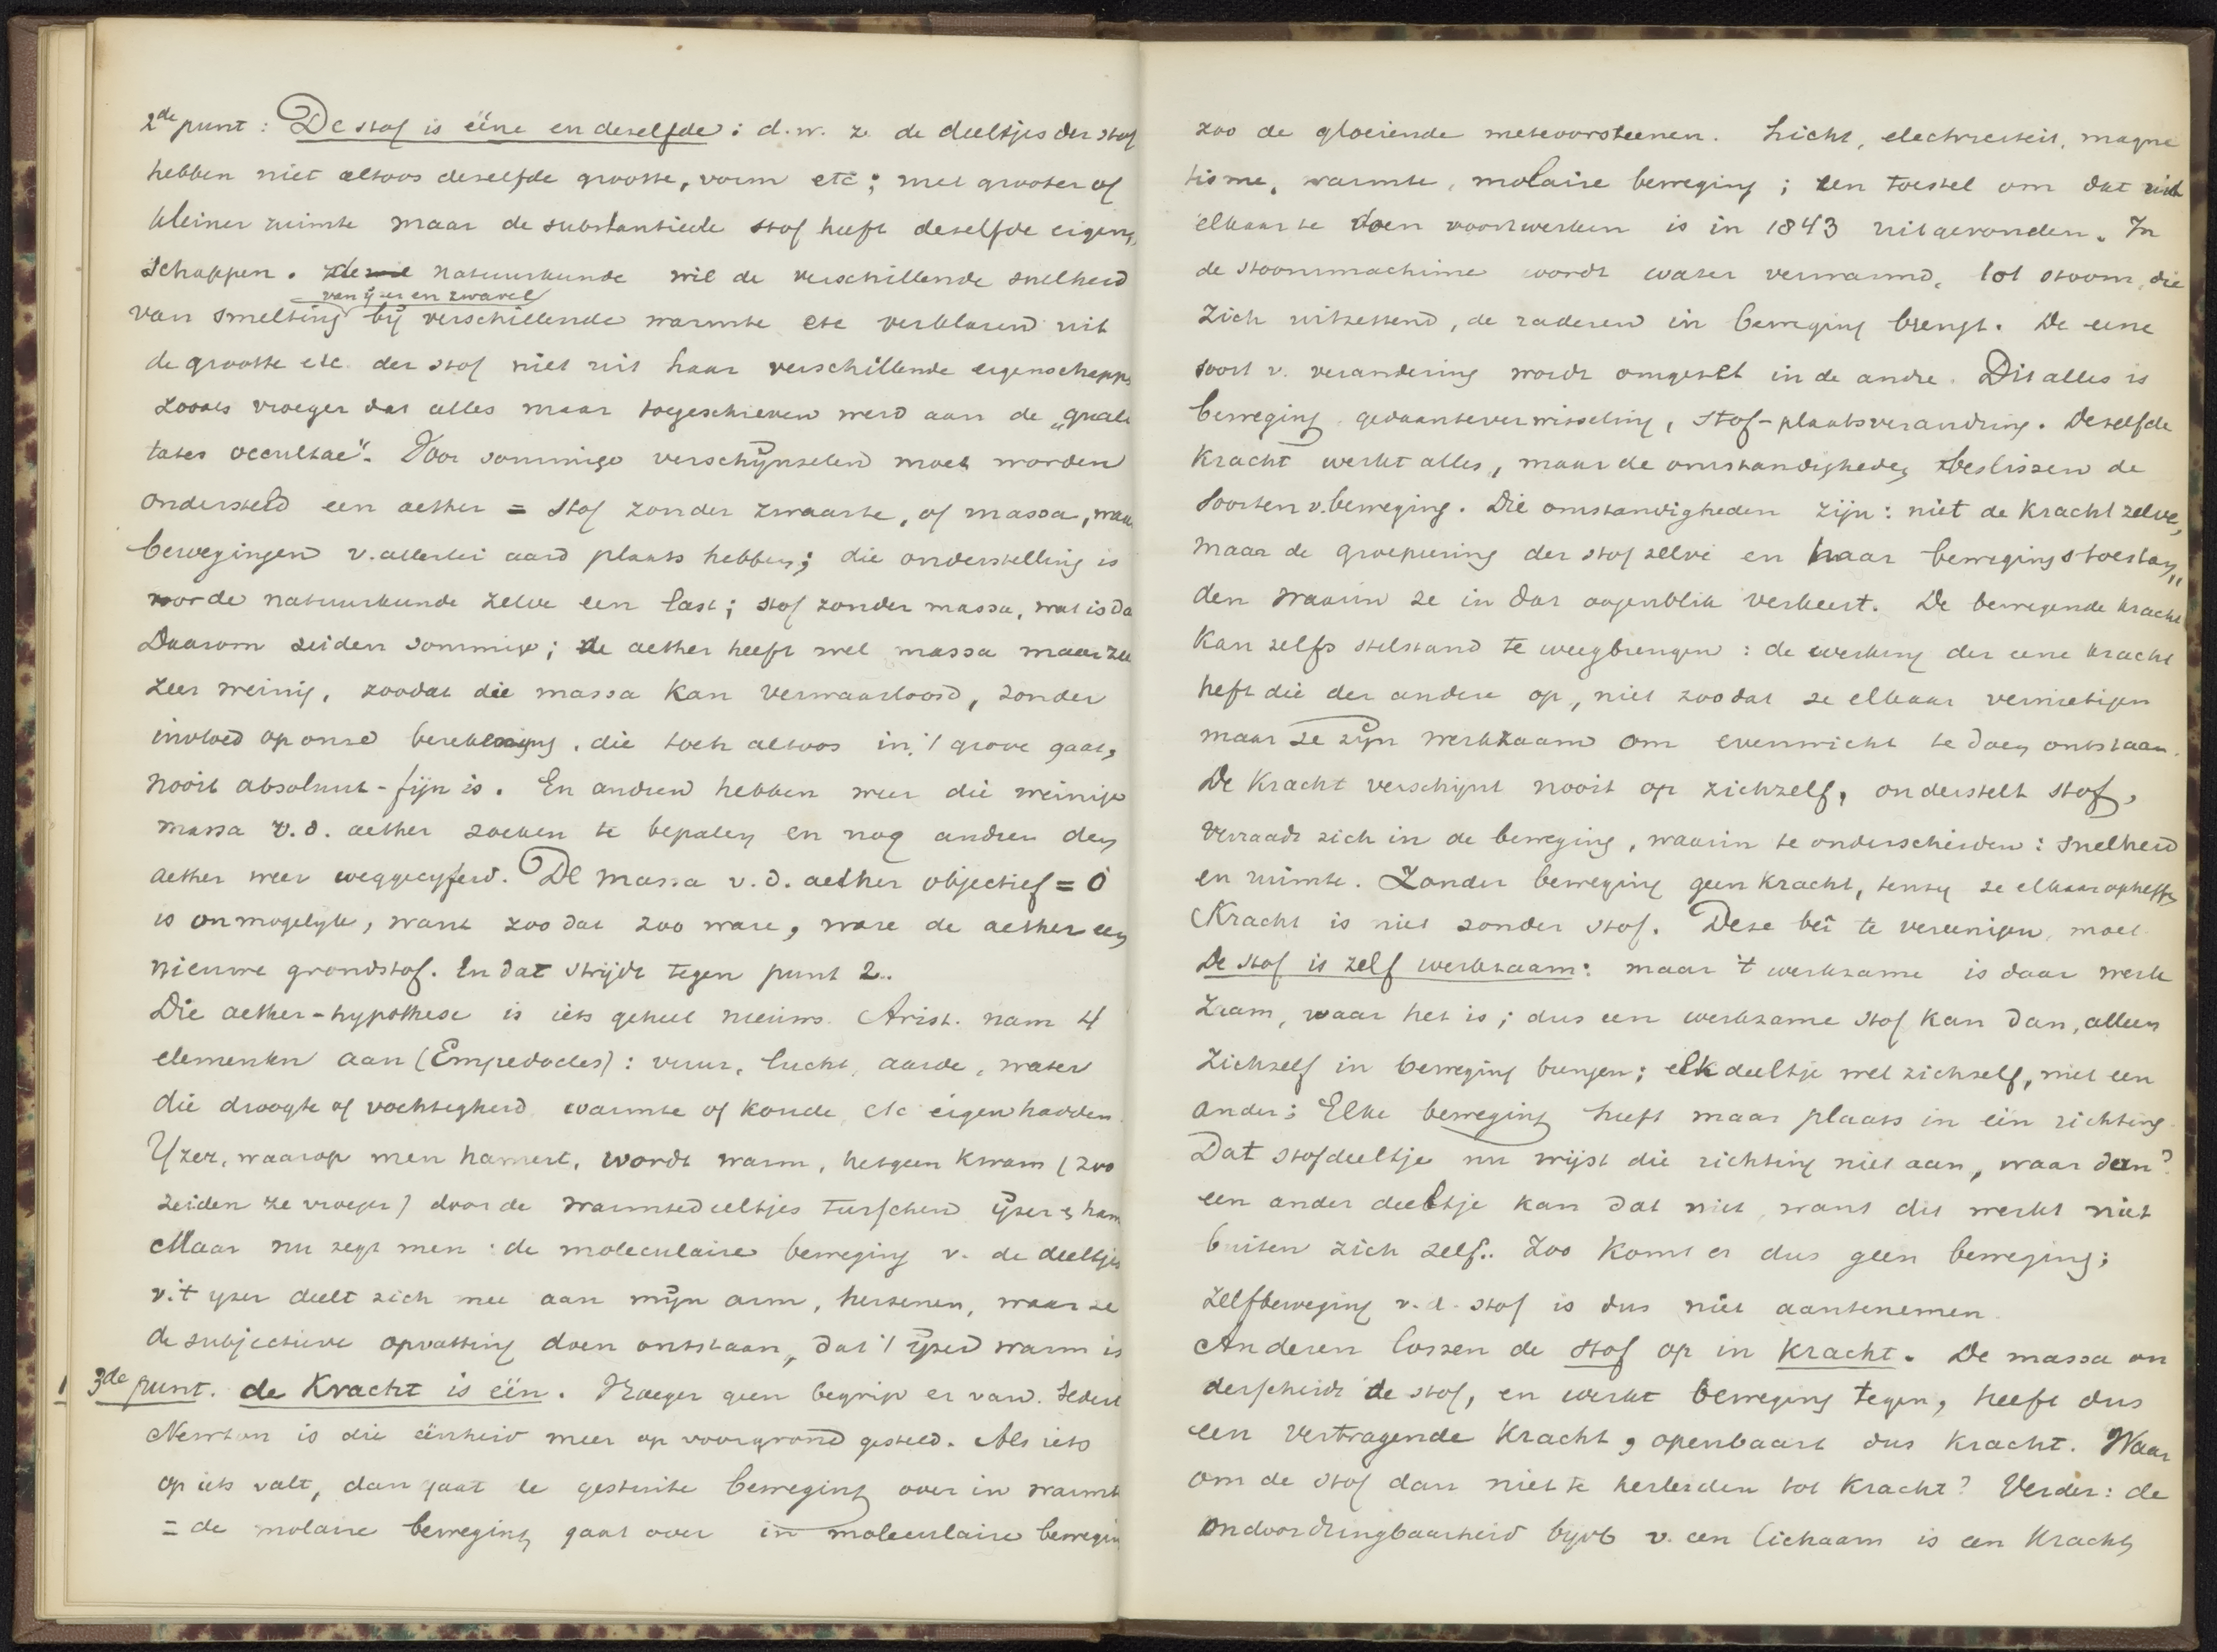 2de punt: De stof is ééne en deselfde: d.w.z. de deeltjes der stof
hebben niet altoos deselfde grootte, vorm etc; met grooter of
kleiner ruimte maar de substantieele stof heeft deselfde eigen,
schappen. de natuurkunde wil de verschillende snelheid
van ijzer en zwavel
van smelting bij verschillende warmte etc verklaren uit
de grootte etc. der stof niet uit haar verschillende eigenschapp
zooals vroeger dat alles maar toegeschreven werd aan de "quali
tates occultae". Voor sommige verschijnselen moet worden
ondersteld een aether = stof zonder zwaarte, of massa, waar
bewegingen v. allerlei aard plaats hebben; die onderstelling is
voor de natuurkunde zelve een last; stof zonder massa, wat is da
Daarom zeiden sommige; de aether heeft wel massa maar zee
zeer weinig, zoodat die massa kan verwaarloosd, zonder
invloed op onse berekening, die toch altoos in 't grove gaat,
nooit absoluut-fijn is. En andren hebben weer die weinige
massa v.d. aether zoeken te bepalen en nog andren den
aether weer weggecyferd. De massa v.d. aether objectief = 0
is onmogelyk, want zoo dat zoo ware, ware de aether een
nieuwe grondstof. En dat strijdt tegen punt 2..
Die aether-hypothese is iets geheel nieuws. Arist. nam 4
elementen aan (Empedocles): vuur, lucht, aarde, water
die droogte of vochtigheid, warmte of koude, etc eigen hadden.
Yzer, waarop men hamert, wordt warm, hetgeen kwam (zoo
zeiden ze vroeger) door de warmtedeeltjes tusschen ijzer & ham
Maar nu zegt men: de moleculaire beweging v. de deeltjes
v. 't yzer deelt zich mee aan mijn arm, hersenen, waar ze
de subjectieve opvatting doen ontstaan, dat 't ijzer warm is
1 3de punt. de Kracht is één. Vroeger geen begrip er van. Sedert
Newton is die éénheid meer op voorgrond gesteld. Als iets
op iets valt, dan gaat de gestuite beweging over in warmt
= de molaire beweging gaat over in moleculaire bewegin
zoo de gloeiende meteoorsteenen. Licht, electriciteit, magne
tisme, warmte, molaire beweging; een toestel om dat uit
elkaar te doen voortwerken is in 1843 uitgevonden. In
de stoommachine wordt water verwarmd, tot stoom, die
zich uitzettend, de raderen in beweging brengt. De eene
soort v. verandering wordt omgeset in de andre. Dit alles is
beweging, gedaanteverwisseling, stof-plaatsverandring. Deselfde
kracht werkt alles, maar de omstandigheden beslissen de
soorten v. beweging. Die omstandigheden zijn: niet de Kracht zelve,
maar de groepeering der stof zelve en haar bewegingstoestan,,
den waarin ze in dat oogenblik verkeert. De bewegende kracht
kan zelfs stilstand te weegbrengen: de werking der eene kracht
heft die der andere op, niet zoodat ze elkaar vernietigen
maar ze zijn werkzaam om evenwicht te doen ontstaan.
De Kracht verschijnt nooit op zichzelf, onderstelt stof,
verraadt zich in de beweging, waarin te onderscheiden: snelheid
en ruimte. Zonder beweging geen kracht, tenzy ze elkaar opheffen
Kracht is niet zonder stof. Deze bei te vereenigen, moet
De stof is zelf werkzaam: maar 't werkzame is daar werk
zaam, waar het is; dus een werkzame stof kan dan, alleen
zichself in beweging brengen; elk deeltje wel zichself, niet een
ander; Elke beweging heeft maar plaats in één richting.
Dat stofdeeltje nu wijst die richting niet aan, waar dan?
een ander deeltje kan dat niet, want dit werkt niet
buiten zich zelf.. Zoo komt er dus geen beweging;
zelfbeweging v.d. stof is dus niet aantenemen.
Anderen lossen de stof op in kracht. De massa on
derscheidt de stof, en werkt beweging tegen, heeft dus
een vertragende Kracht, openbaart dus kracht. Waar
om de stof dan niet te herleiden tot Kracht? Verder: de
ondoordringbaarheid bijvb v. een lichaam is een kracht,